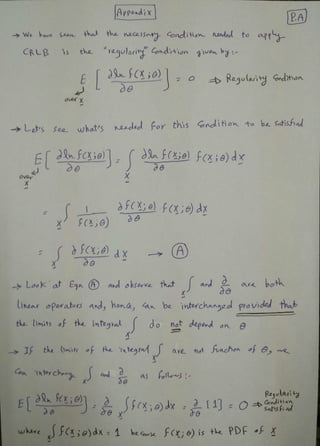 Appendix
P.A
→ We have seen that the necessary condition needed to apply
CRLB is the "regularity" condition given by :-
E [ ∂ ln f(X;θ) / ∂θ ] = 0 ⇒ Regularity Condition
over X
→ Let's see what's needed for this condition to be satisfied
E [ ∂ ln f(X;θ) / ∂θ ] = ∫ ∂ ln f(X;θ) / ∂θ f(X;θ) dX
over X
= ∫ 1 / f(X;θ) ∂ f(X;θ) / ∂θ f(X;θ) dX
= ∫ ∂ f(X;θ) / ∂θ dX → (A)
→ Look at Eqn (A) and observe that ∫ and ∂/∂θ are both
linear operators and, hence, can be interchanged provided that
the limits of the integral ∫ do not depend on θ
→ If the limits of the integral ∫ are not function of θ, we
can interchange ∫ and ∂/∂θ as follows :-
E [ ∂ ln f(X;θ) / ∂θ ] = ∂/∂θ ∫ f(X;θ) dX = ∂/∂θ [1] = 0 ⇒ Regularity Condition Satisfied
where ∫ f(X;θ) dX = 1 because f(X;θ) is the PDF of X